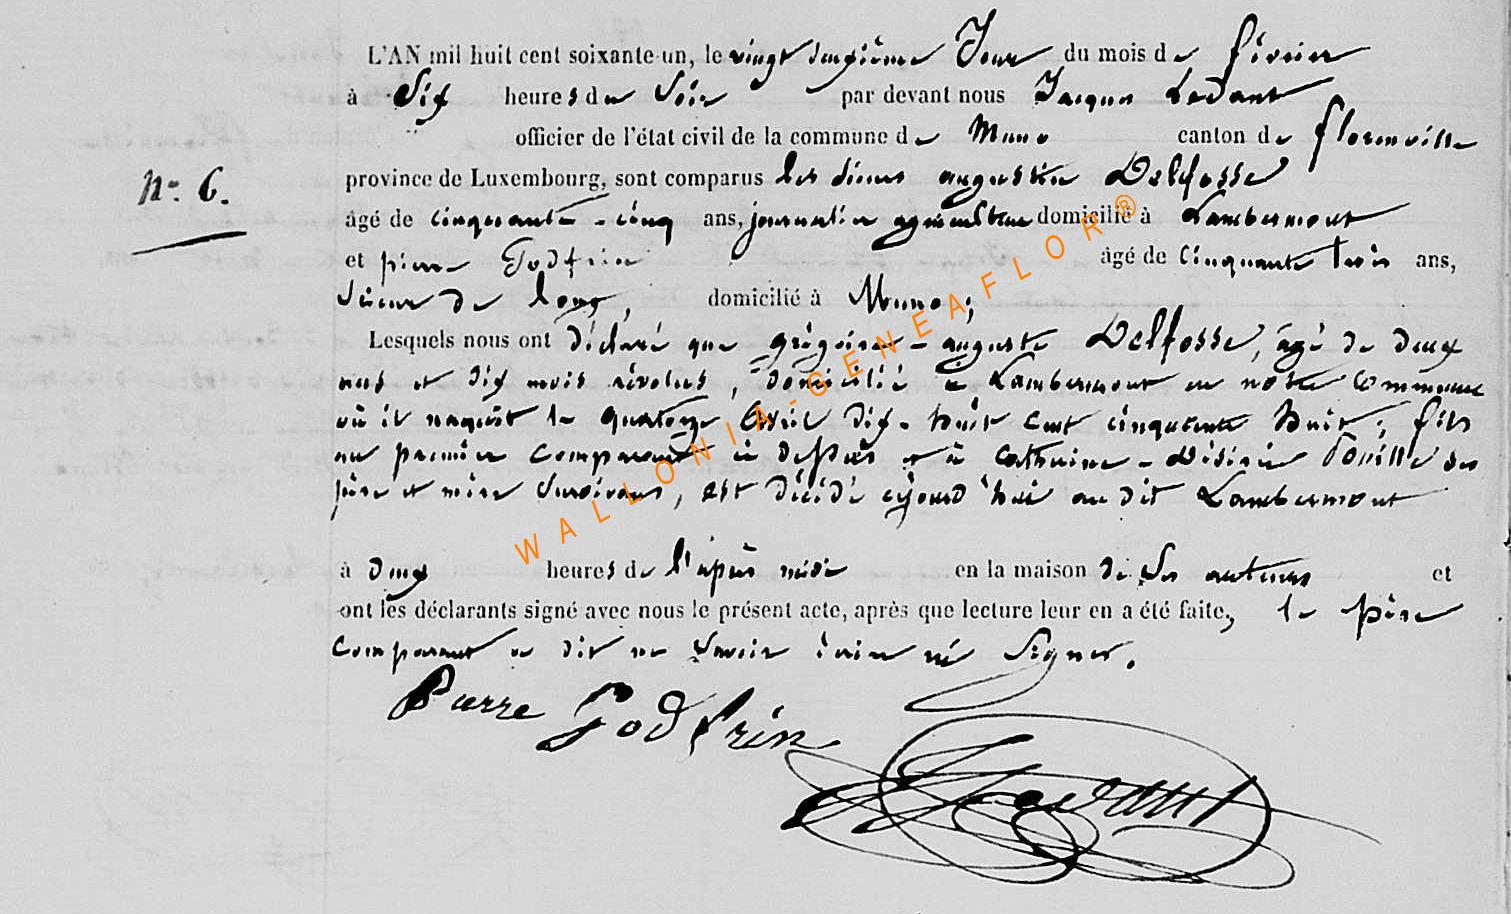 L'AN mil huit cent soixante-un, le vingt deuxième Jour du mois de février
à Six heures du Soir par devant nous Jacques Ledant
officier de l'état civil de la commune de Muno canton de florenville
N° 6.
province de Luxembourg, sont comparus les sieurs augustin Delfosse
âgé de cinquante-cinq ans, journalier agriculteur domicilié à Lambermont
et pierre Godfrin âgé de Cinquante trois ans,
Scieur de long, domicilié à Muno;
Lesquels nous ont déclaré que grégoire-auguste Delfosse, âgé de deux
ans et dix mois révolus, domicilié à Lambermont en notre Commune
où il naquit le quatorze avril dix-huit cent cinquante huit; fils
au premier comparant à et à catherine-désirée ses
père et mère Survivans, est décédé cejourd'hui au dit Lambermont
à deux heures de l'après midi en la maison de Ses auteurs et
ont les déclarants signé avec nous le présent acte, après que lecture leur en a été faite, le père
comparant a dit ne Savoir écrire ni Signer.
Pierre Godfrin
Ledant
WALLONIA-GENEAFLOR®